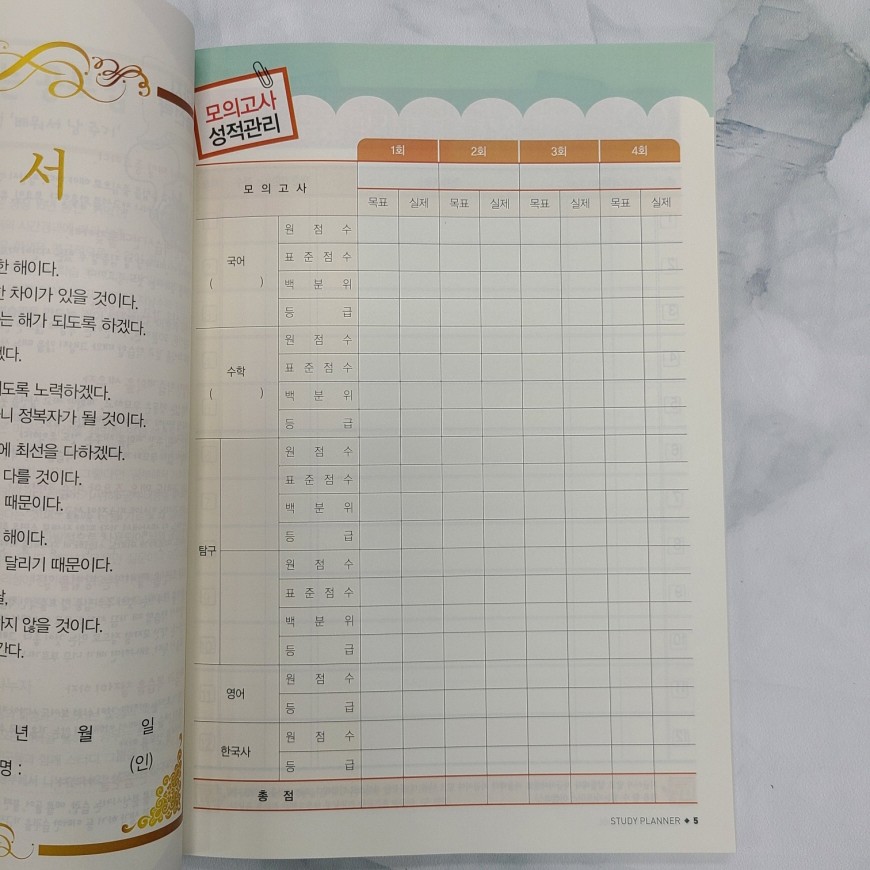 서
한 해이다.
차이가 있을 것이다.
는 해가 되도록 하겠다.
겠다.
되도록 노력하겠다.
니 정복자가 될 것이다.
에 최선을 다하겠다.
다를 것이다.
때문이다.
해이다.
달리기 때문이다.
날,
하지 않을 것이다.
간다.
년 월 일
명 : (인)
모의고사
성적관리
1회 2회 3회 4회
모 의 고 사
목표 실제 목표 실제 목표 실제 목표 실제
국어
( )
원 점 수
표 준 점 수
백 분 위
등 급
수학
( )
원 점 수
표 준 점 수
백 분 위
등 급
탐구
원 점 수
표 준 점 수
백 분 위
등 급
원 점 수
표 준 점 수
백 분 위
등 급
영어
원 점 수
등 급
한국사
원 점 수
등 급
총 점
STUDY PLANNER ◆ 5